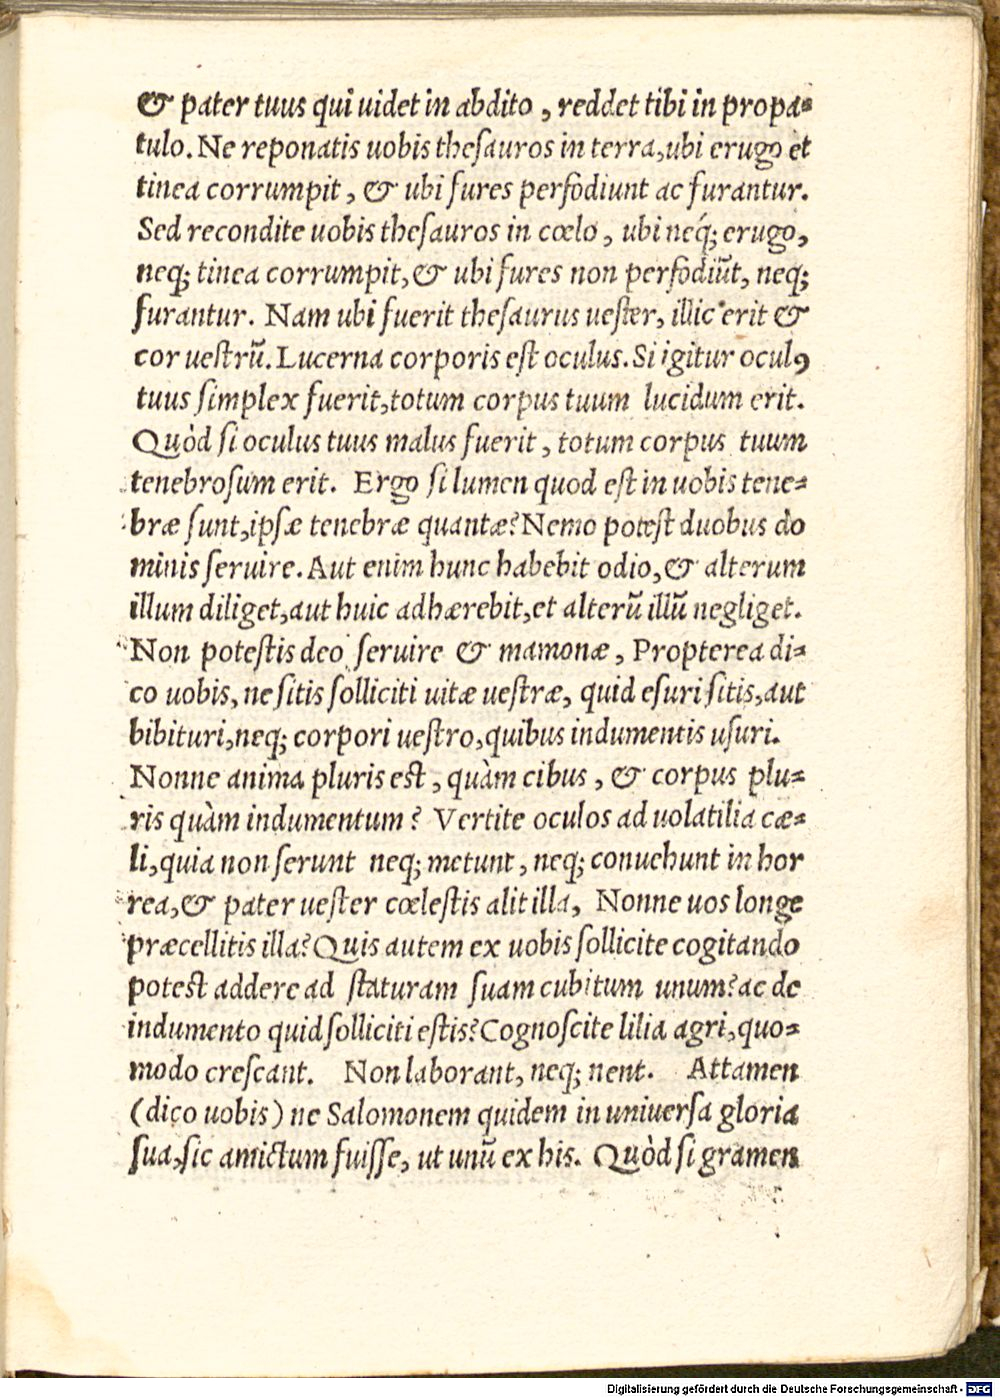 & pater tuus qui uidet in abdito, reddet tibi in propa-
tulo. Ne reponatis uobis theſauros in terra, ubi erugo et
tinea corrumpit, & ubi fures perfodiunt ac furantur.
Sed recondite uobis theſauros in cœlo, ubi neq́; erugo,
neq; tinea corrumpit, & ubi fures non perfodiūt, neq;
furantur. Nam ubi fuerit theſaurus ueſter, illic erit &
cor ueſtrū. Lucerna corporis eſt oculus. Si igitur oculꝰ
tuus ſimplex fuerit, totum corpus tuum lucidum erit.
Quòd ſi oculus tuus malus fuerit, totum corpus tuum
tenebroſum erit. Ergo ſi lumen quod eſt in uobis tene-
bræ ſunt, ipſæ tenebræ quantæ? Nemo poteſt duobus do
minis ſeruire. Aut enim hunc habebit odio, & alterum
illum diliget, aut huic adhærebit, et alterū illū negliget.
Non poteſtis deo ſeruire & mamonæ, Propterea di-
co uobis, ne ſitis ſolliciti uitæ ueſtræ, quid eſuri ſitis, aut
bibituri, neq; corpori ueſtro, quibus indumentis uſuri.
Nonne anima pluris eſt, quàm cibus, & corpus plu-
ris quàm indumentum? Vertite oculos ad uolatilia cæ-
li, quia non ſerunt neq; metunt, neq; conuehunt in hor
rea, & pater ueſter cœleſtis alit illa, Nonne uos longe
præcellitis illa? Quis autem ex uobis ſollicite cogitando
poteſt addere ad ſtaturam ſuam cubitum unum? ac de
indumento quid ſolliciti eſtis? Cognoſcite lilia agri, quo-
modo creſcant. Non laborant, neq; nent. Attamen
(dico uobis) ne Salomonem quidem in uniuerſa gloria
ſua, ſic amictum fuiſſe, ut unū ex his. Quòd ſi gramen
Digitalisierung gefördert durch die Deutsche Forschungsgemeinschaft - DFG